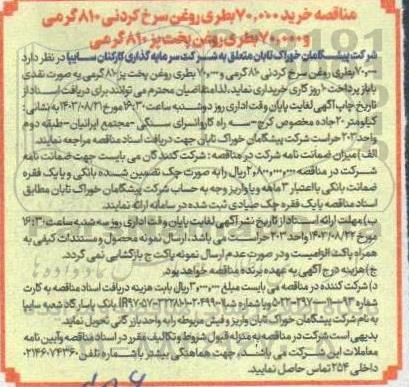 مناقصه خرید ۷۰,۰۰۰ بطری روغن سرخ کردنی ۸۱۰ گرمی
و ۷۰,۰۰۰ بطری روغن پخت پز ۸۱۰ گرمی
شرکت پیشگامان خوراک تابان متعلق به شرکت سرمایه گذاری کارکنان سایپا در نظر دارد
۷۰,۰۰۰ بطری روغن سرخ کردنی ۸۱۰ گرمی و ۷۰,۰۰۰ بطری روغن پخت پز ۸۱۰ گرمی به صورت نقدی
با باز پرداخت ۱۰ روز کاری خریداری نماید، لذا متقاضیان محترم می توانند برای دریافت اسناد از
تاریخ چاپ آگهی لغایت پایان وقت اداری روز دوشنبه ساعت ۱۶:۳۰ مورخ ۱۴۰۳/۰۸/۲۱ به نشانی:
کیلومتر ۲۰ جاده مخصوص کرج - سه راه کاروانسرای سنگی - مجتمع ایرانیان - طبقه دوم
واحد ۲۰۳ حراست شرکت پیشگامان خوراک تابان جهت دریافت اسناد مناقصه مراجعه نمایند.
الف) میزان ضمانت نامه شرکت در مناقصه: شرکت کنندگان می بایست جهت ضمانت نامه
شرکت در مناقصه ۲,۸۰۰,۰۰۰,۰۰۰ ریال را به صورت چک تضمین شده بانکی و یا یک فقره
ضمانت بانکی با اعتبار ۳ ماهه و یا واریز وجه به حساب شرکت پیشگامان خوراک تابان مطابق
اسناد مناقصه یا یک فقره چک صیادی ثبت شده در سامانه ارائه نمایند.
ب) مهلت ارائه اسناد از تاریخ نشر آگهی لغایت پایان وقت اداری روز سه شنبه ساعت ۱۶:۳۰
مورخ ۱۴۰۳/۰۸/۲۲ واحد ۲۰۳ حراست می باشد، ارسال نمونه محصول و مستندات کیفی به
همراه پاکت الزامیست و در صورت عدم ارسال نمونه پاکت ج بازگشایی نمی گردد.
ج) هزینه درج آگهی به عهده برنده مناقصه خواهد بود.
د) شرکت کننده در مناقصه می بایست مبلغ ۳,۰۰۰,۰۰۰ ریال بابت هزینه دریافت اسناد مناقصه به کارت
شماره و یا شماره شبا بانک پاسارگاد شعبه سایپا
به نام شرکت پیشگامان خوراک تابان واریز و فیش مربوطه را به واحد بازرگانی تحویل نماید.
بدیهی است شرکت در مناقصه به منزله قبول شروط و تکالیف مقرر در اسناد مناقصه و آیین نامه
معاملات این شرکت می باشد، جهت هماهنگی بیشتر با شماره تلفن ۰۲۱۴۶۰۷۴۳۶۰
داخلی ۲۵۴ تماس حاصل نمایید.